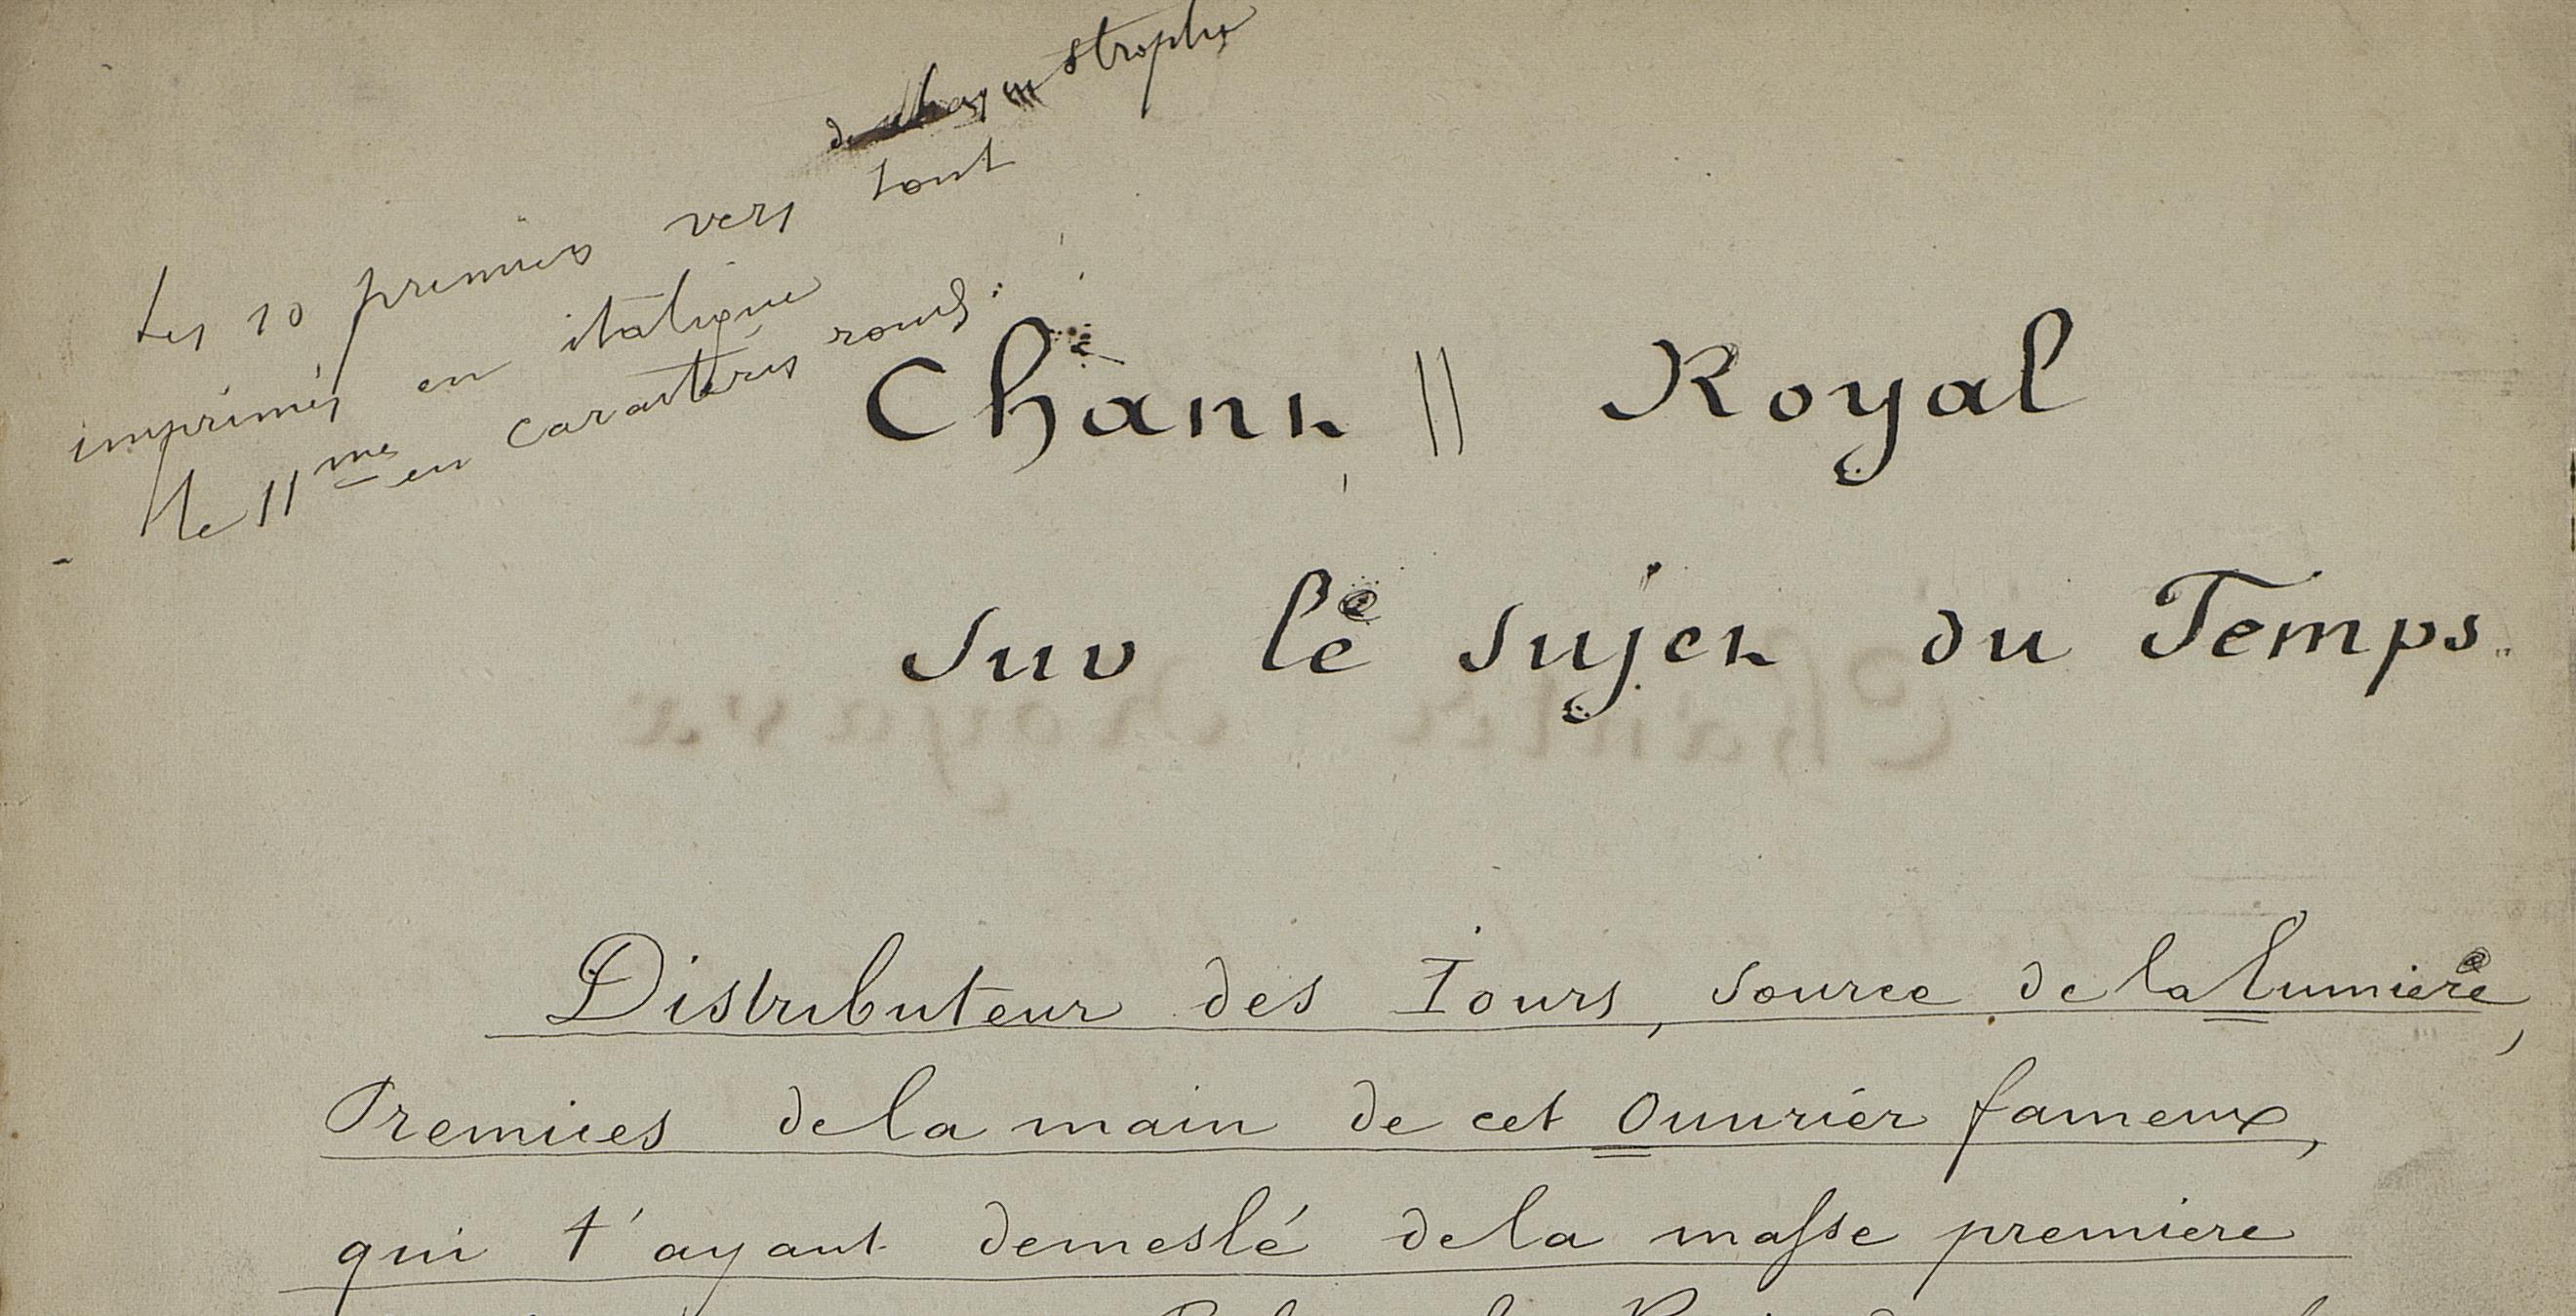 de chaque strophe
Les 10 premiers vers sont
imprimés en italique
le 11me en caractères ronds
Chant || Royal
Sur le sujet du Temps.
Distributeur des Iours, source de la lumiere,
Premices de la main de cet Ouurier fameux,
qui t'ayant demeslé de la maſse premiere